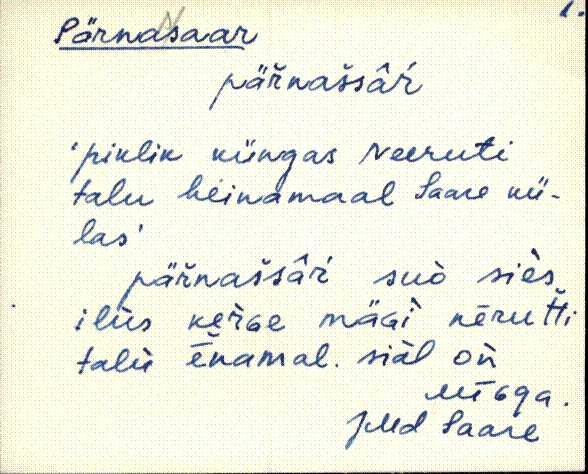 1.
Pärnasaar
päřnaššâŕ
'piklik küngas Neeruti
talu heinamaal Saare kü-
las'
päřnaššâŕ suò siès
ilùs keŕGe mäGì nēruťťi
talù ēnamal. siäl oǹ
JMd Saare